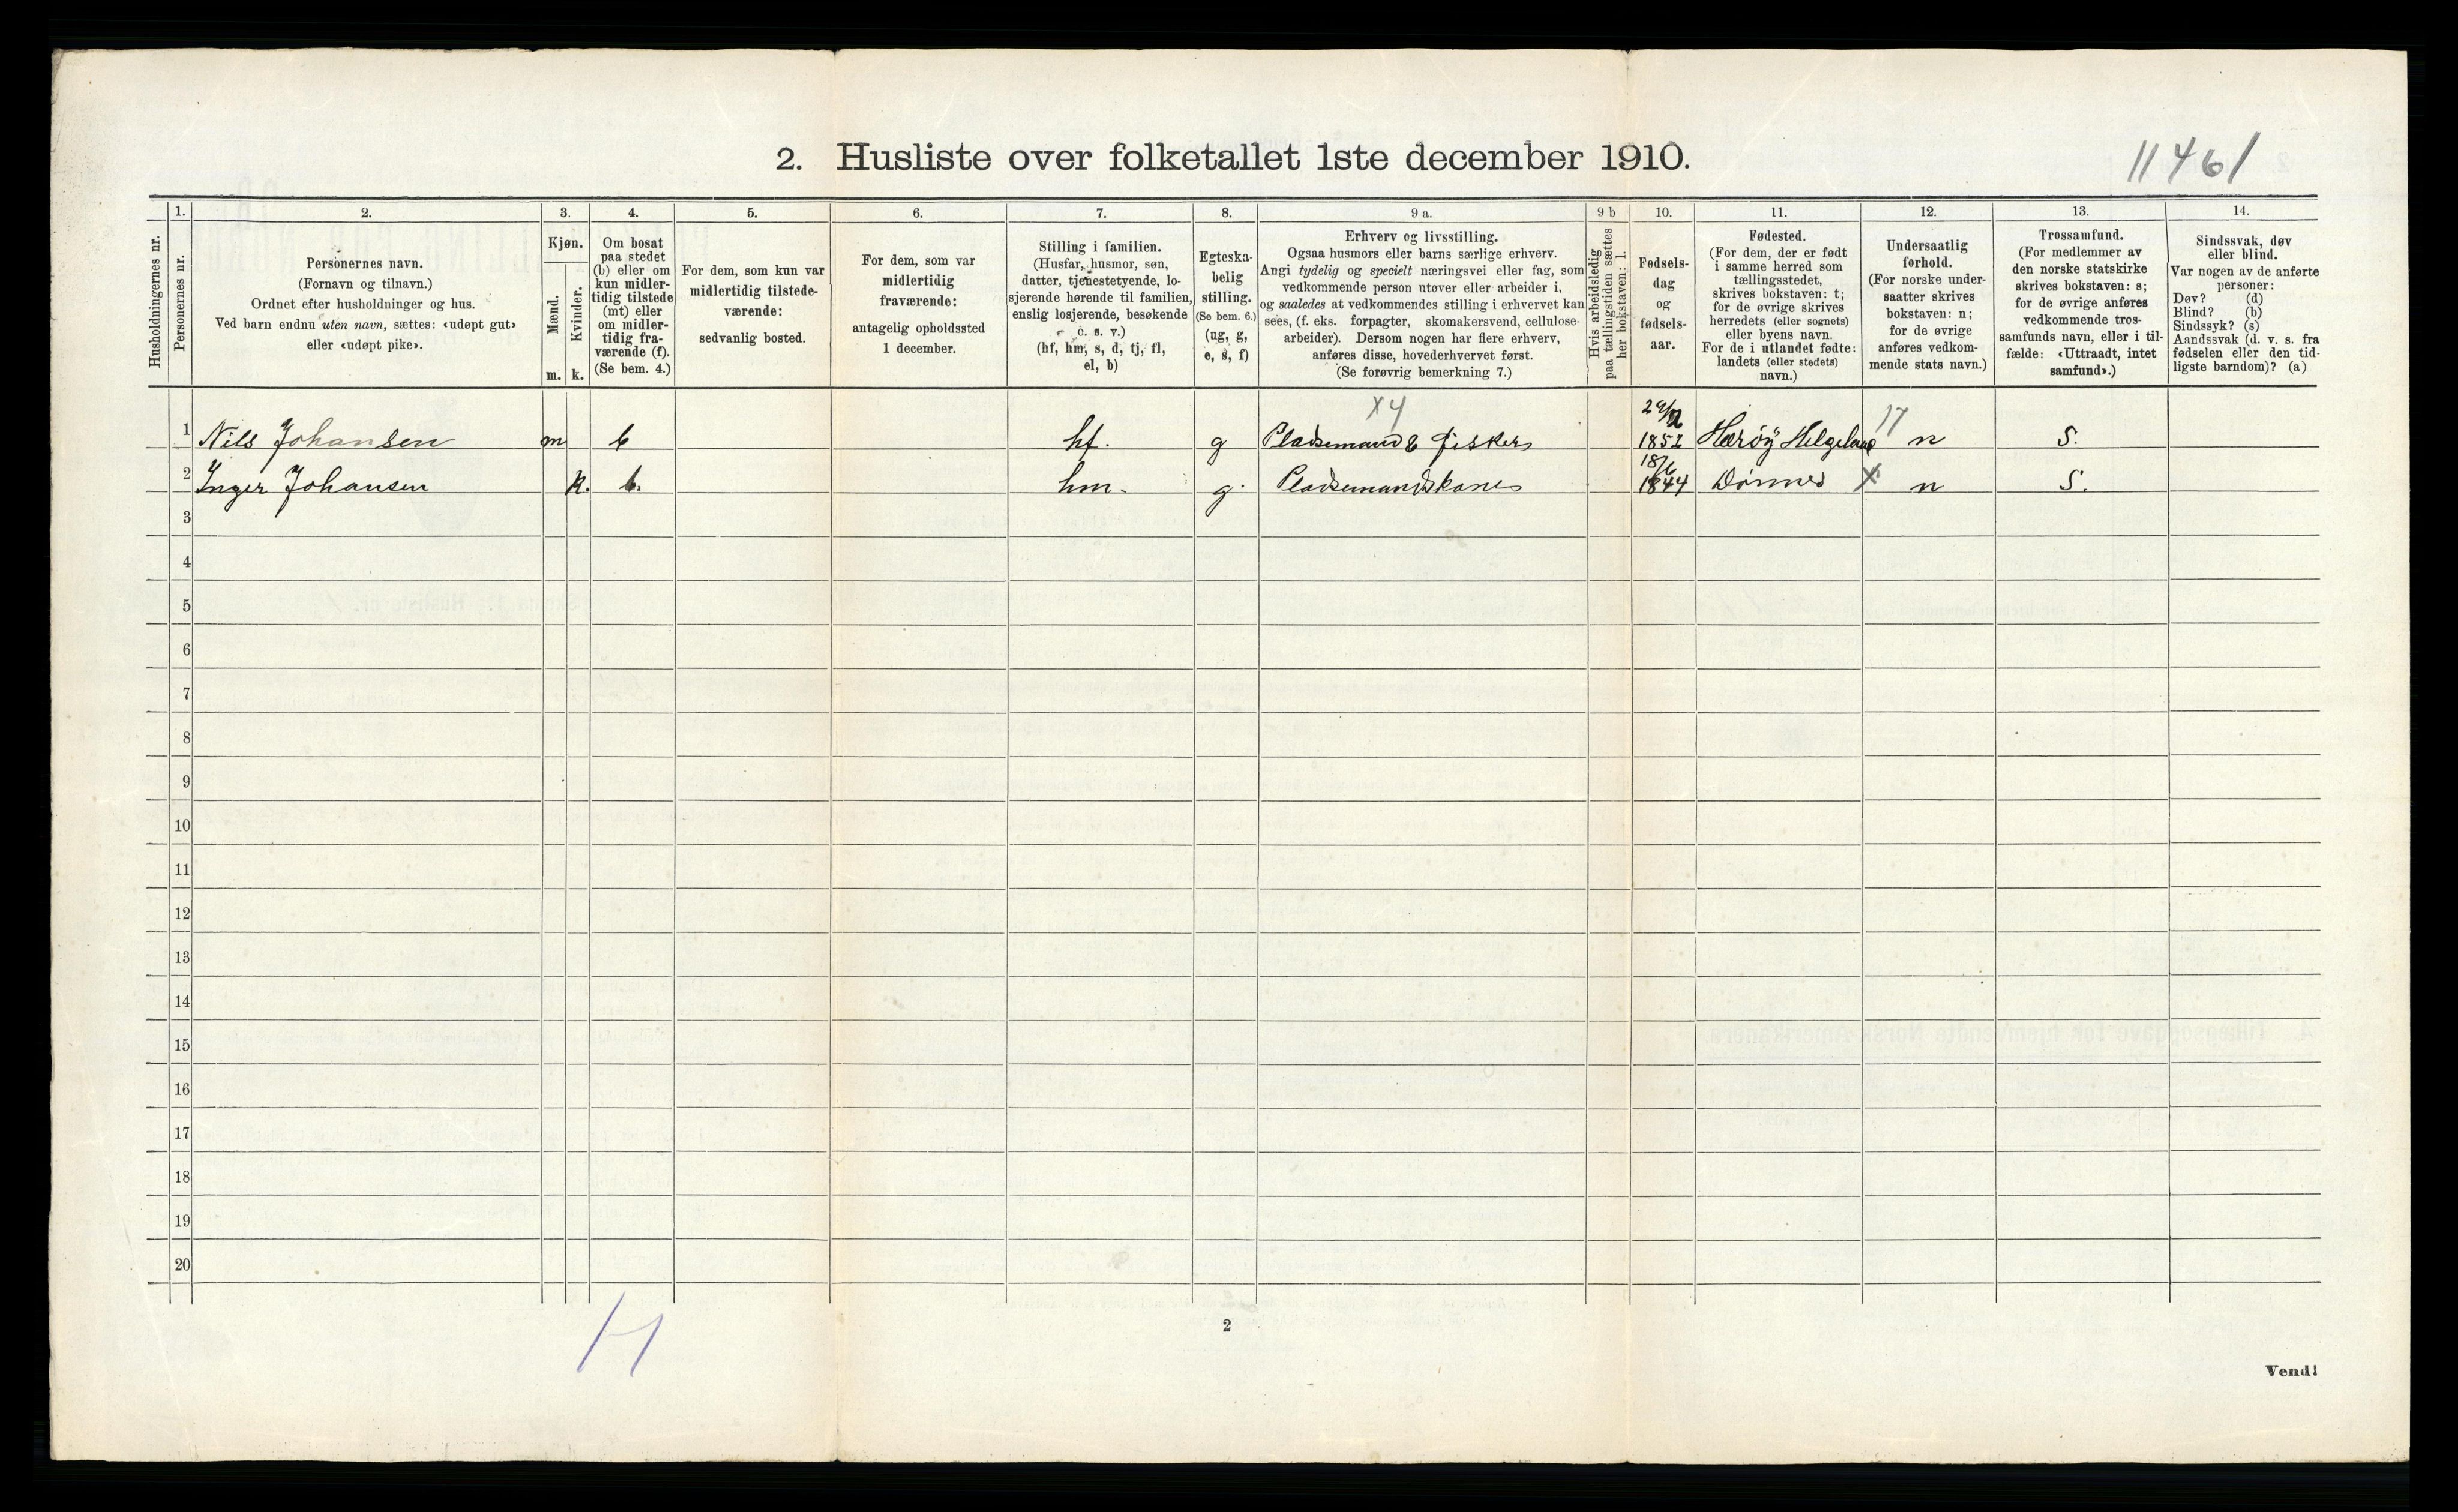 11461
2. Husliste over folketallet 1ste december 1910.
Husholdningernes nr.
1.
Personernes nr.
2.
Personernes navn.
(Fornavn og tilnavn.)
Ordnet efter husholdninger og hus.
Ved barn endnu uten navn, sættes: «udøpt gut»
eller «udøpt pike».
3.
Kjøn.
Mænd.
Kvinder.
m. k.
4.
Om bosat
paa stedet
(b) eller om
kun midler-
tidig tilstede
(mt) eller
om midler-
tidig fra-
værende (f).
(Se bem. 4.)
5.
For dem, som kun var
midlertidig tilstede-
værende:
sedvanlig bosted.
6.
For dem, som var
midlertidig
fraværende:
antagelig opholdssted
1 december.
7.
Stilling i familien.
(Husfar, husmor, søn,
datter, tjenestetyende, lo-
sjerende hørende til familien,
enslig losjerende, besøkende
o. s. v.)
(hf, hm, s, d, tj, fl,
el, b)
8.
Egteska-
belig
stilling.
(Se bem. 6.)
(ug, g,
e, s, f)
9 a.
Erhverv og livsstilling.
Ogsaa husmors eller barns særlige erhverv.
Angi tydelig og specielt næringsvei eller fag, som
vedkommende person utøver eller arbeider i,
og saaledes at vedkommendes stilling i erhvervet kan
sees, (f. eks. forpagter, skomakersvend, cellulose-
arbeider). Dersom nogen har flere erhverv,
anføres disse, hovederhvervet først.
(Se forøvrig bemerkning 7.)
9 b
Hvis arbeidsledig
paa tællingstiden sættes
her bokstaven: l.
10.
Fødsels-
dag
og
fødsels-
aar.
11.
Fødested.
(For dem, der er født
i samme herred som
tællingsstedet,
skrives bokstaven: t;
for de øvrige skrives
herredets (eller sognets)
eller byens navn.
For de i utlandet fødte:
landets (eller stedets)
navn.)
12.
Undersaatlig
forhold.
(For norske under-
saatter skrives
bokstaven: n;
for de øvrige
anføres vedkom-
mende stats navn.)
13.
Trossamfund.
(For medlemmer av
den norske statskirke
skrives bokstaven: s;
for de øvrige anføres
vedkommende tros-
samfunds navn, eller i til-
fælde: «Uttraadt, intet
samfund».)
14.
Sindssvak, døv
eller blind.
Var nogen av de anførte
personer:
Døv? (d)
Blind? (b)
Sindssyk? (s)
Aandssvak (d. v. s. fra
fødselen eller den tid-
ligste barndom)? (a)
x4 17
1 Nils Johansen m b hf. g Pladsemand & fisker 1852 Herøy Helgeland n s.
2 Inger Johansen k. b. hm. g. Pladsemandskone 1844 Dønnes X n s.
3
4
5
6
7
8
9
10
11
12
13
14
15
16
17
18
19
20
2
Vend!